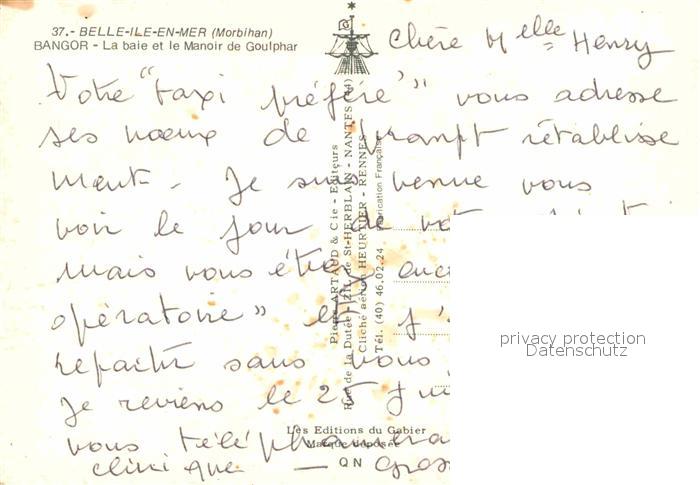 37.- BELLE-ILE-EN-MER (Morbihan)
BANGOR - La baie et le Manoir de Goulphar
Chère Melle Henry
Votre "taxi préféré" vous adresse
ses voeux de prompt rétablisse
ment. Je suis venue vous
voir le jour de
mais vous étiez
opératoire"
repartir sans vous
Je reviens le 25
vous
clinique —
Pierre ARTAUD & Cie - Editeurs
Rue de la Dutée - ZIL de St-HERBLAIN - NANTES
Cliché aérien HEURTIER - RENNES
Tél. (40) 46.02.24 Fabrication Française
Les Editions du Gabier
Marque déposée
QN
privacy protection
Datenschutz